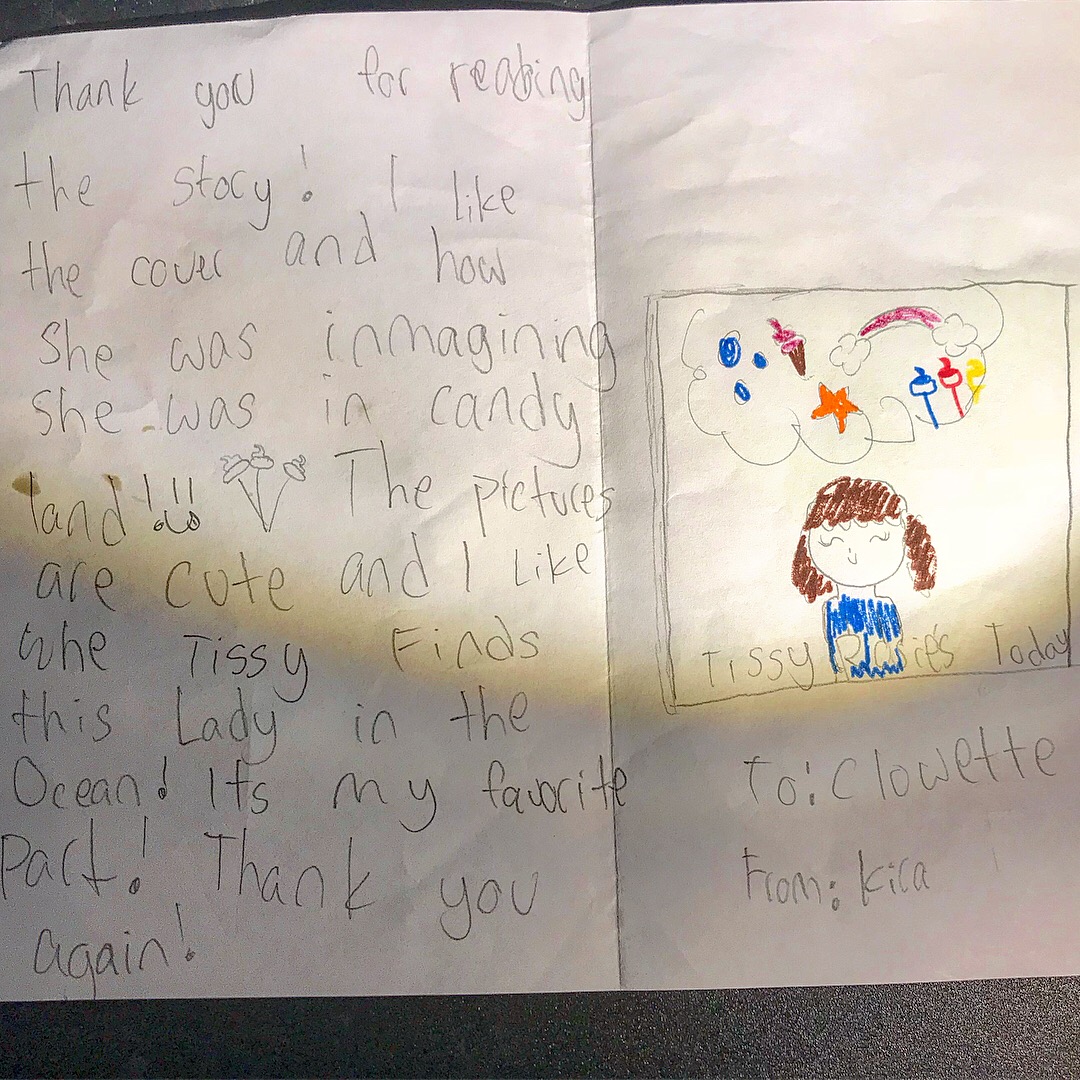 Thank you for reading
the story! I like
the cover and how
she was inmagining
she was in candy
land!!! The pictures
are cute and I like
whe Tissy Finds
this Lady in the
Ocean! Its my favorite
Part! Thank you
again!
Tissy Today
To: Clowette
From: Kira